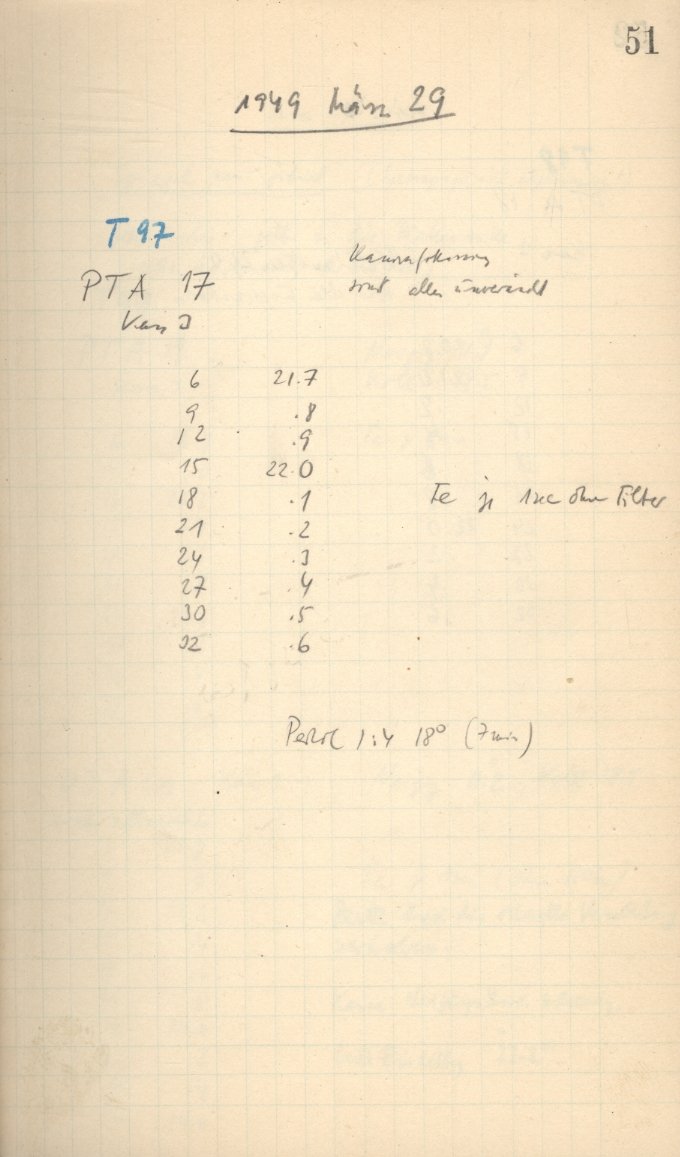 51
1949 März 29
T 97
PTA 17
Kamerafokussierung
sonst alles unverändert
6 21.7
9 .8
12 .9
15 22.0
18 .1
Fe je 1sec ohne Filter
21 .2
24 .3
27 .4
30 .5
32 .6
1:4 18° (7min)